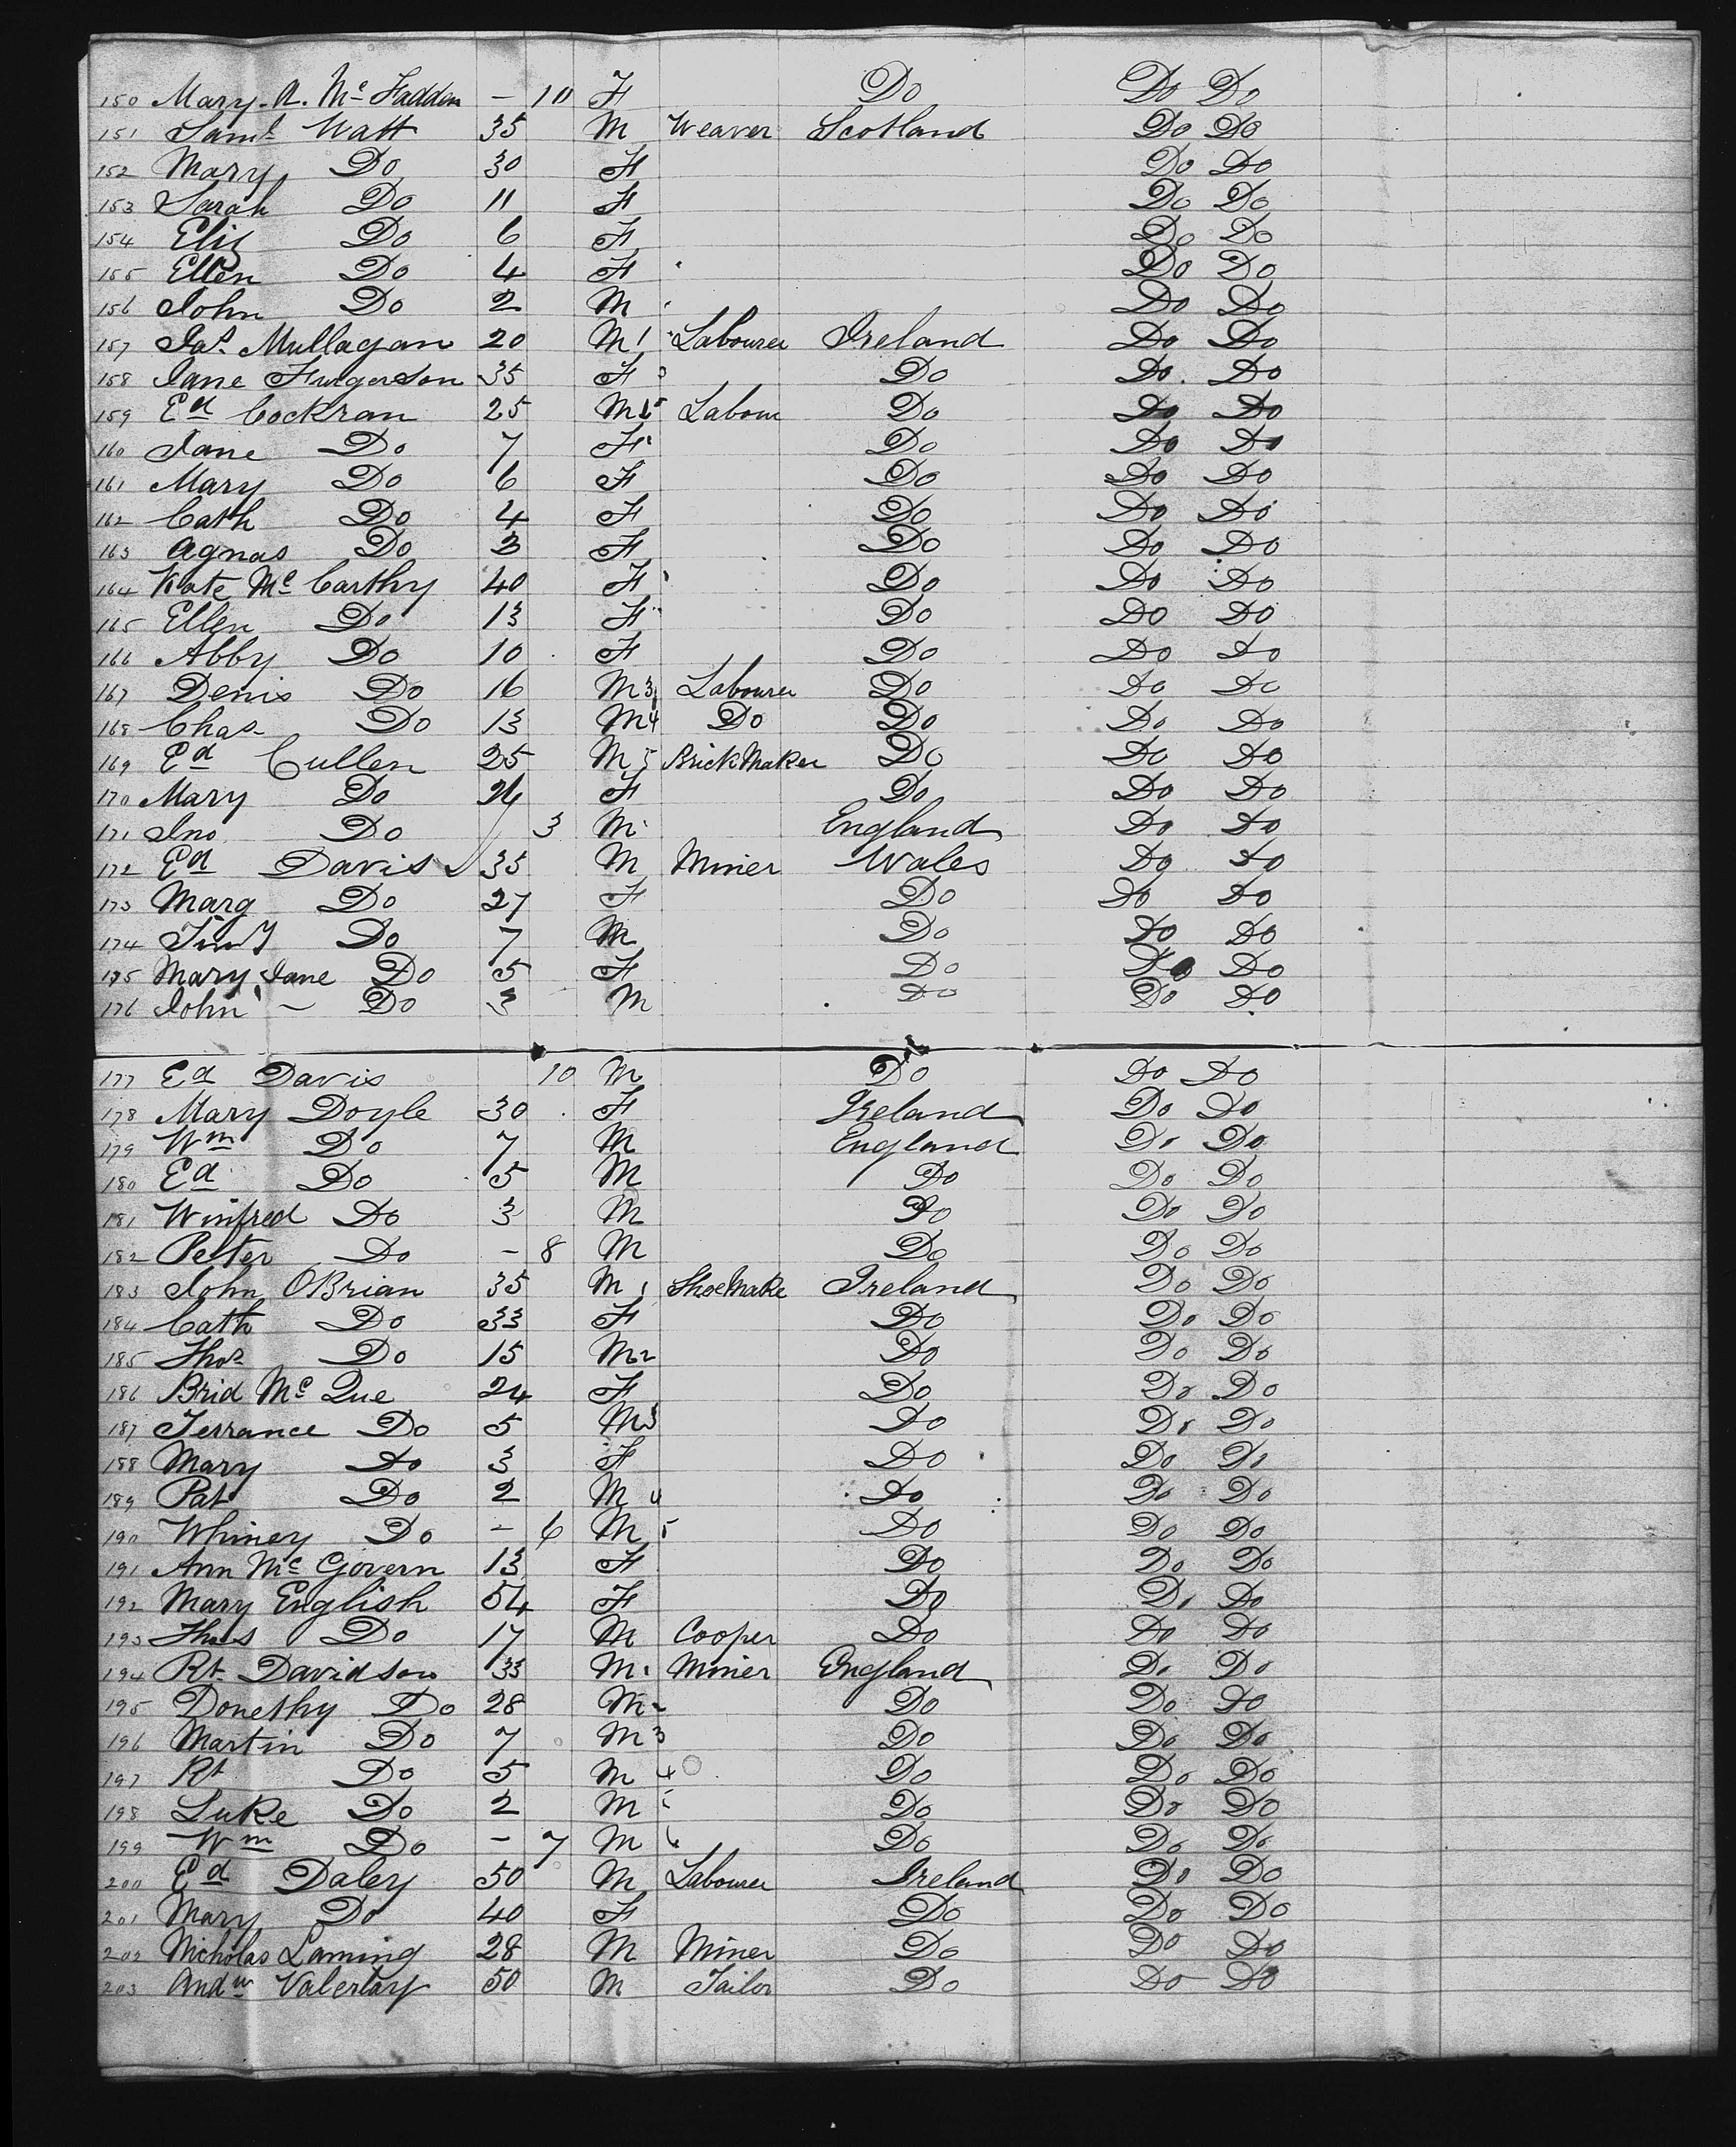 150 Mary. A. Mc Fadden - 10 F Do Do Do
151 Saml Watt 35 M Weaver Scotland Do Do
152 Mary Do 30 F Do Do
153 Sarah Do 11 F Do Do
154 Eliz Do 6 F Do Do
155 Ellen Do 4 F Do Do
156 John Do 2 M Do Do
157 Jas. Mullagan 20 M 1 Labourer Ireland Do Do
158 Jane Furgerson 35 F Do Do Do
159 Ed Cockran 25 M Labour Do Do Do
160 Jane Do 7 F Do Do Do
161 Mary Do 6 F Do Do Do
162 Cath Do 4 F Do Do Do
163 Agnas Do 3 F Do Do Do
164 Kate Mc Carthy 40 F Do Do Do
165 Ellen Do 13 F Do Do Do
166 Abby Do 10 F Do Do Do
167 Denis Do 16 M 3 Labourer Do Do Do
168 Chas Do 13 M 4 Do Do Do Do
169 Ed Cullen 25 M 5 Brick Maker Do Do Do
170 Mary Do 24 F Do Do Do
171 Jno Do 3 M England Do Do
172 Ed Davis 35 M Miner Wales Do Do
173 Marg Do 27 F Do Do Do
174 Do 7 M Do Do Do
175 Mary Jane Do 5 F Do Do Do
176 John - Do 3 M Do Do Do
177 Ed Davis 10 M Do Do Do
178 Mary Doyle 30 F Ireland Do Do
179 Wm Do 7 M England Do Do
180 Ed Do 5 M Do Do Do
181 Winfred Do 3 M Do Do Do
182 Peter Do - 8 M Do Do Do
183 John OBrian 35 M 1 ShoeMake Ireland Do Do
184 Cath Do 33 F Do Do Do
185 Thos Do 15 M 2 Do Do Do
186 Brid Mc Que 24 F Do Do Do
187 Terrance Do 5 M 3 Do Do Do
188 Mary Do 3 F Do Do Do
189 Pat Do 2 M 4 Do Do Do
190 Whiney Do - 6 M 5 Do Do Do
191 Ann Mc Govern 13 F Do Do Do
192 Mary English 54 F Do Do Do
193 Thos Do 17 M Cooper Do Do Do
194 Rt Davidson 33 M 1 Miner England Do Do
195 Donethy Do 28 M 2 Do Do Do
196 Martin Do 7 M 3 Do Do Do
197 Rt Do 5 M 4 Do Do Do
198 Luke Do 2 M 5 Do Do Do
199 Wm Do - 7 M 6 Do Do Do
200 Ed Daley 50 M Labourer Ireland Do Do
201 Mary Do 40 F Do Do Do
202 Nicholas Laming 28 M Miner Do Do Do
203 Andw Valertay 50 M Tailor Do Do Do